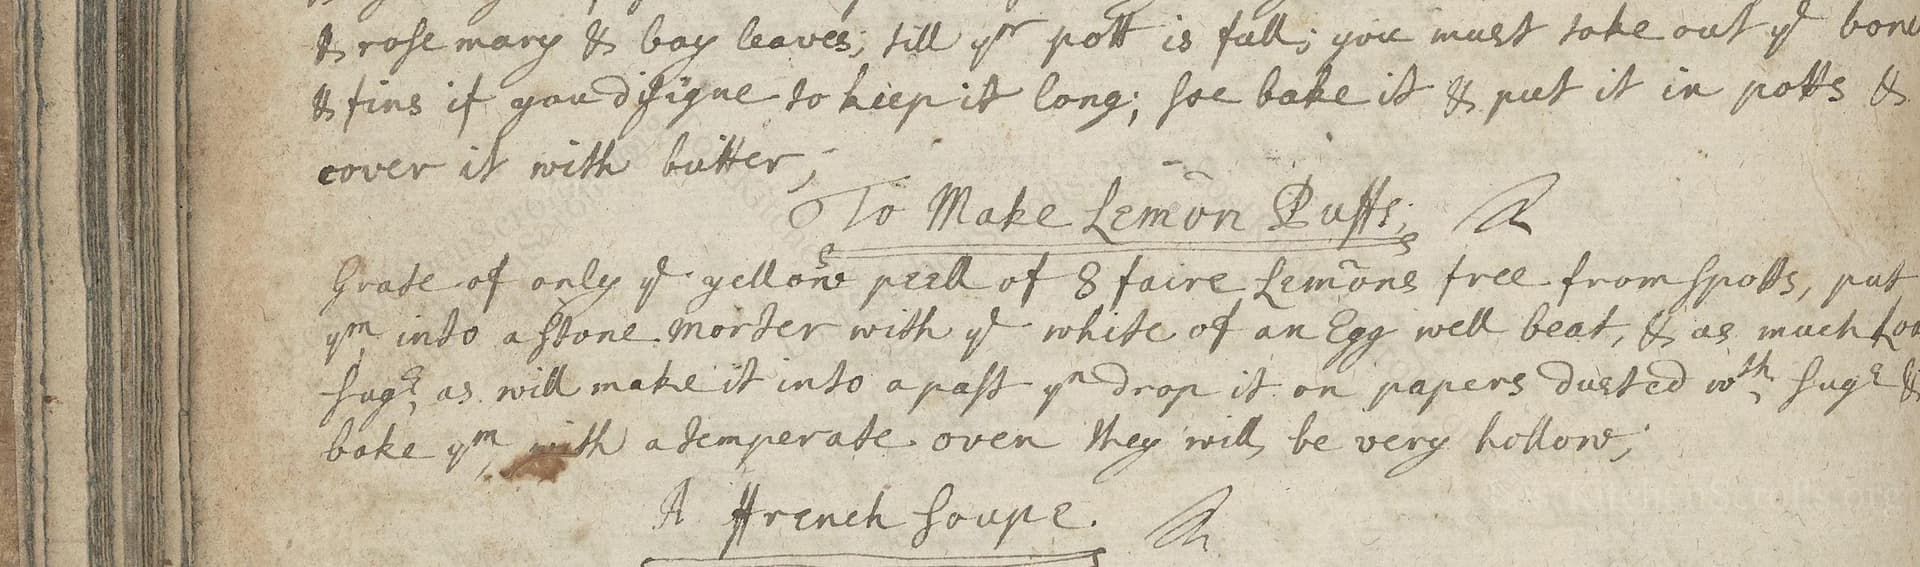 & rosemary & bay leaves, till yr pott is full; you must take out ye bone
& fins if you disigne to keep it long; soe bake it & put it in potts &
cover it with butter;
To Make Lemon Puffs;
Grate of only ye yellow peell of 8 faire Lemons free from spotts, put
ym into a stone morter with ye white of an Egg well beat, & as much
sugr as will make it into a past yn drop it on papers dusted wth sugr &
bake ym with a temperate oven they will be very hollow;
A ffrench Soupe.
KitchenScrolls.org